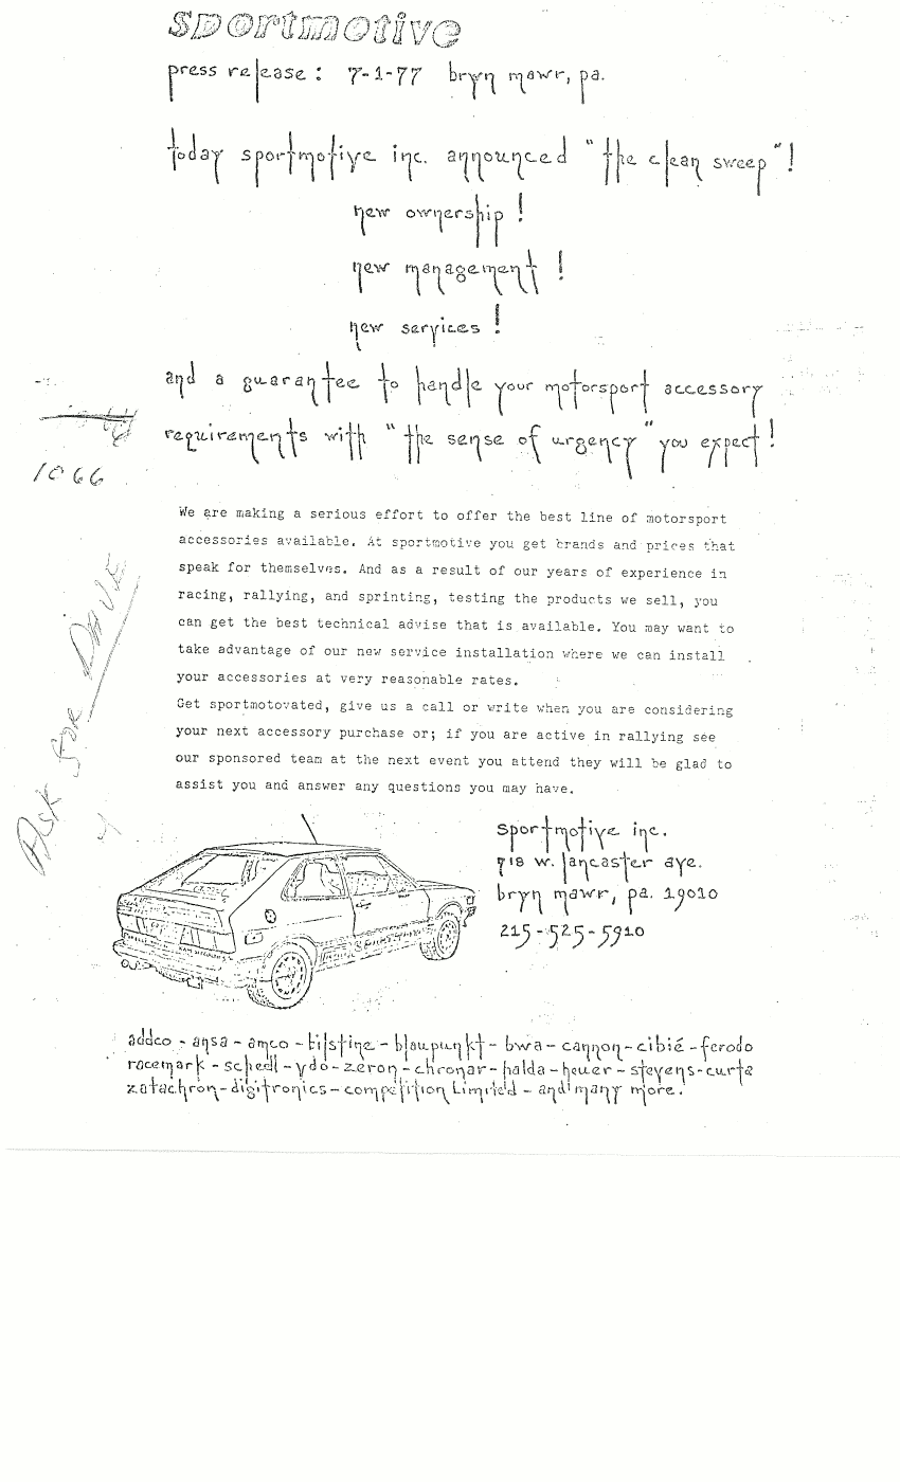 sportmotive
press release: 7-1-77 bryn mawr, pa.
today sportmotive inc. announced "the clean sweep"!
new ownership!
new management!
new services!
and a guarantee to handle your motorsport accessory
requirements with "the sense of urgency" you expect!
1066
We are making a serious effort to offer the best line of motorsport
accessories available. At sportmotive you get brands and prices that
speak for themselves. And as a result of our years of experience in
racing, rallying, and sprinting, testing the products we sell, you
can get the best technical advise that is available. You may want to
take advantage of our new service installation where we can install
your accessories at very reasonable rates.
Get sportmotovated, give us a call or write when you are considering
your next accessory purchase or; if you are active in rallying see
our sponsored team at the next event you attend they will be glad to
assist you and answer any questions you may have.
Ask for DAVE
sportmotive inc.
718 w. lancaster ave.
bryn mawr, pa. 19010
215-525-5910
addco - ansa - amco - bilstine - blaupunkt - bwa - cannon - cibié - ferodo
racemark - scheel - vdo - zeron - chronar - halda - heuer - stevens - curta
zatachron - digitronics - competition Limited - and many more.